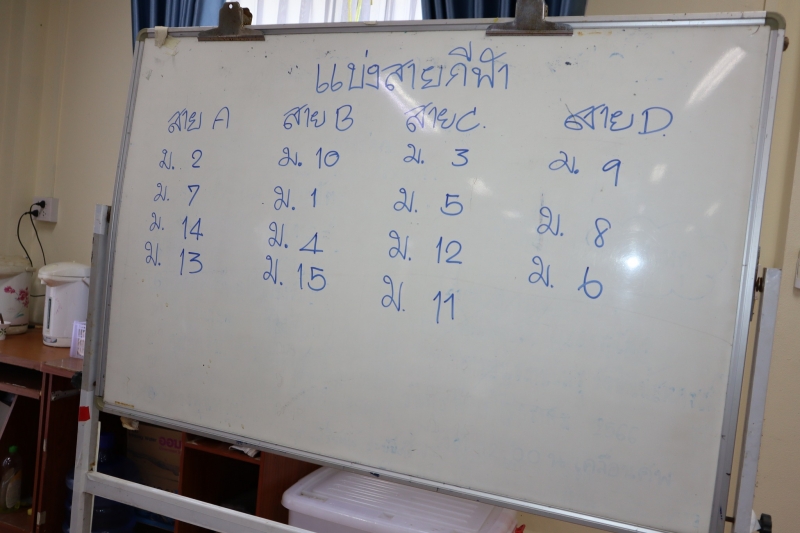 แบ่งสายกีฬา
สาย A สาย B สาย C. สาย D.
ม. 2 ม. 10 ม. 3 ม. 9
ม. 7 ม. 1 ม. 5 ม. 8
ม. 14 ม. 4 ม. 12 ม. 6
ม. 13 ม. 15 ม. 11